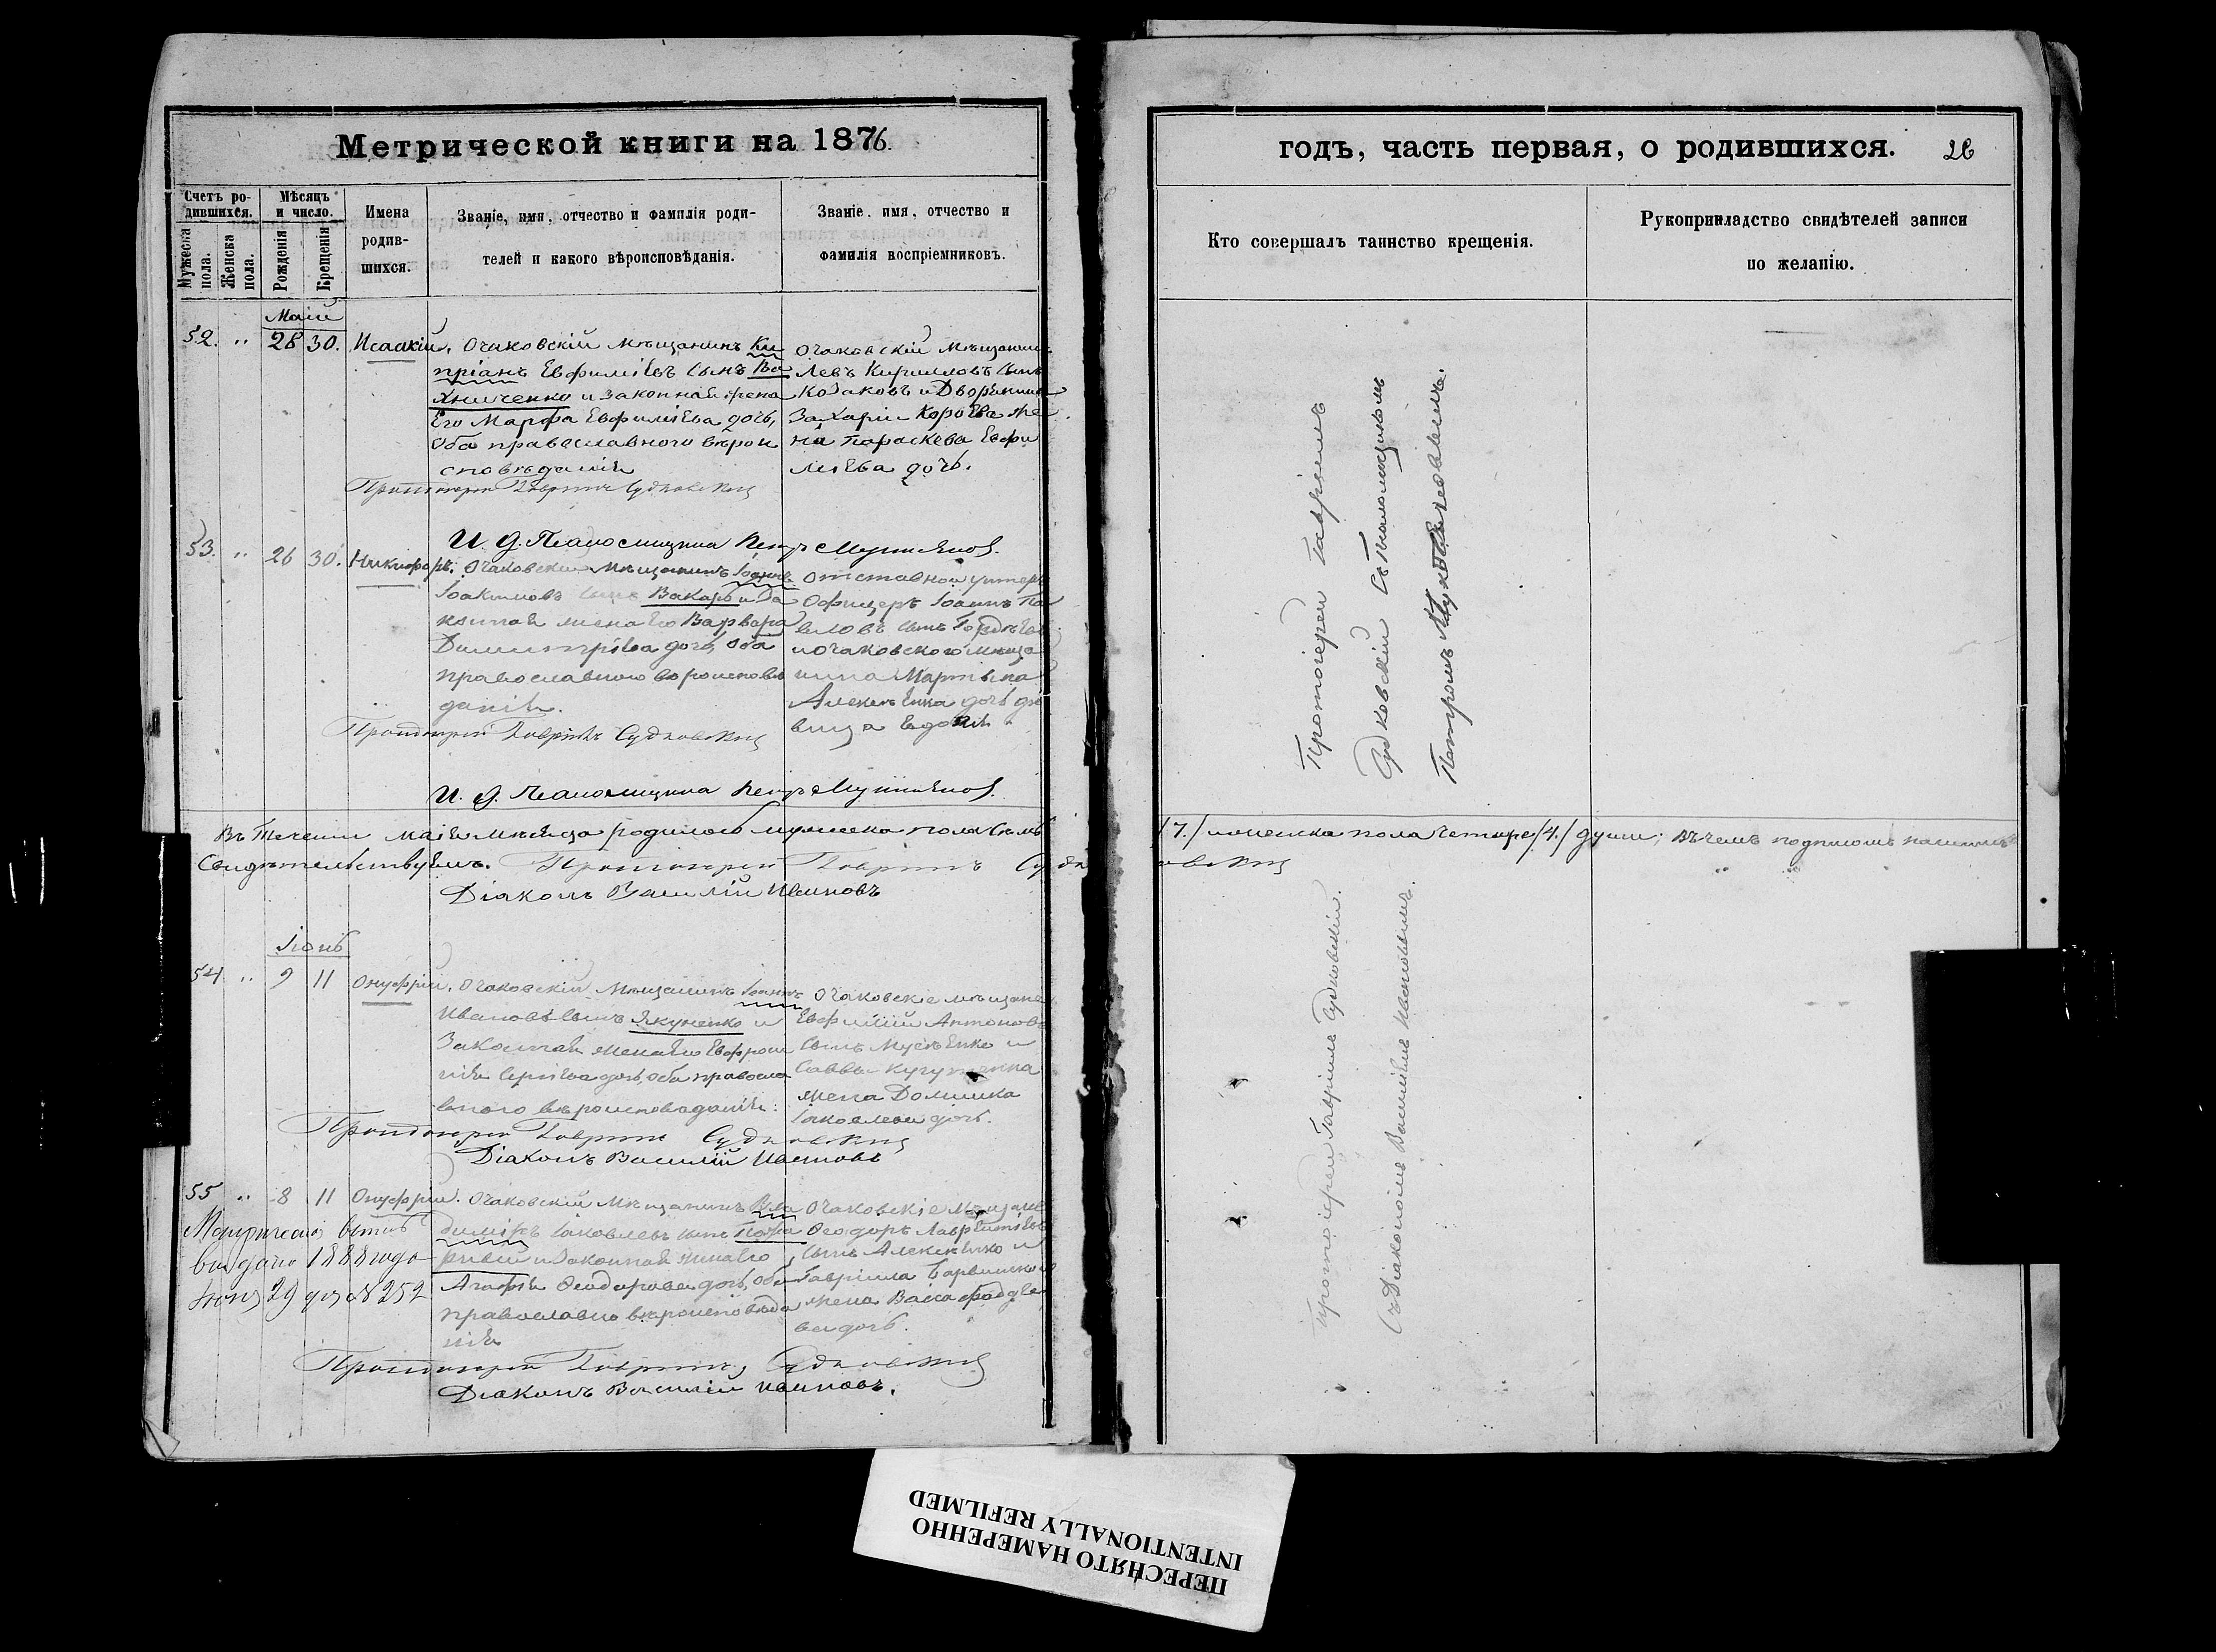 Метрической книги на 1876.
Счетъ ро-
дившихся.
Мужеска пола.
Женска пола.
Мѣсяцъ
и число.
Рожденія
Крещенія
Имена
родив-
шихся.
Званіе, имя, отчество и фамилія роди-
телей и какого вѣроисповѣданія.
Званіе, имя, отчество и
фамилія воспріемниковъ.
Май
52. " 28 30. Исаакій.
Очаковскій мѣщанинъ Ки
пріанъ Евфиміевъ сынъ
и законная жена
Его Марфа Евфиміева дочь,
Оба православнаго вѣрои
сповѣданія
Очаковскій мѣщанинъ
Левъ Кирилловъ сынъ
Козаковъ и Дворянина
Захарія жe
на Параскева Евфи
міева дочь.
Протоіерей Гавріилъ Судковскій
И. д. Псаломщика Петръ
53. " 26 30. Никифоръ.
Очаковскій мѣщанинъ
Іоакимовъ сынъ Вакаръ и За
конная жена Его Варвара
Димитріева дочь, Оба
православнаго вѣроисповѣ
данія.
Отставной унтеръ
Офицеръ Іоаннъ Па
вловъ сынъ
и Очаковскаго мѣща
нина Мартына
Алексѣенка дочь дѣ
вица
Протоіерей Гавріилъ Судковскій
И. д. Псаломщика Петръ
Въ теченіи маія мѣсяца родилось мужеска пола семь
Свидѣтельствуемъ. Протоіерей Гавріилъ Судк
Діаконъ Василій Ивановъ
Іюнь
54 " 9 11 Онуфрій.
Очаковскій мѣщанинъ Іоаннъ
Ивановъ сынъ Якуненко и
Законная жена Его Евфроси
нія Сергіева дочь, оба правосла
внаго вѣроисповѣданія.
Очаковскіе мѣщане
Евфимій Антоновъ
сынъ Мусѣенко и
Саввы
жена Домника
Іаковлева дочь.
Протоіерей Гавріилъ Судковскій
Діаконъ Василій Ивановъ
55 " 8 11 Онуфрій.
Метрическая выпись
выдана 1888 года
Іюня 29 дня № 252
Очаковскій мѣщанинъ Вла
диміръ Іаковлевъ сынъ
и Законная жена Его
Агафія Ѳеодорова дочь, Оба
православнаго вѣроисповѣда
нія
Очаковскіе мѣщане
Ѳеодоръ Лаврентіевъ
сынъ Алексѣенко и
Гавріила
жена Васса
ва дочь.
Протоіерей Гавріилъ Судковскій
Діаконъ Василій Ивановъ.
годъ, часть первая, о родившихся. 26
Кто совершалъ таинство крещенія.
Рукоприкладство свидѣтелей записи
по желанію.
Протоіерей Гавріилъ
Судковскій Съ Псаломщикомъ
Петромъ
/7./ и женска пола четыре /4./ души; въ чемъ подписомъ нашимъ
овскій
Протоіерей Гавріилъ Судковскій.
Съ Діакономъ Василіемъ Ивановымъ.
ПЕРЕСНЯТО НАМЕРЕННО
INTENTIONALLY REFILMED